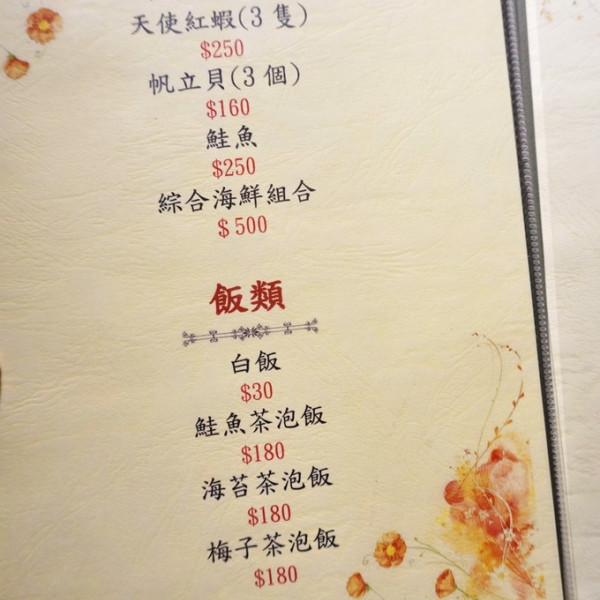 天使紅蝦(3 隻)
$250
帆立貝(3 個)
$160
鮭魚
$250
綜合海鮮組合
$ 500
飯類
白飯
$30
鮭魚茶泡飯
$180
海苔茶泡飯
$180
梅子茶泡飯
$180